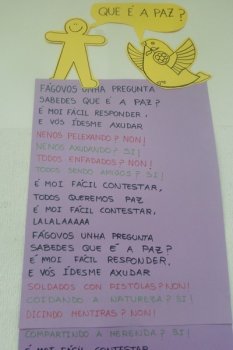 QUE É A PAZ?
FAGOVOS UNHA PREGUNTA
SABEDES QUE E A PAZ?
É MOI FACIL RESPONDER,
E VÓS ÍDESME AXUDAR
NENOS PELEXANDO? NON!
NENOS AXUDANDO? SI!
TODOS ENFADADOS? NON!
TODOS SENDO AMIGOS? SI!
É MOI FÁCIL CONTESTAR,
TODOS QUEREMOS PAZ
É MOI FÁCIL CONTESTAR,
LALALAAAAA
FÁGOVOS UNHA PREGUNTA
SABEDES QUE É A PAZ?
É MOI FÁCIL RESPONDER,
E VÓS ÍDESME AXUDAR
SOLDADOS CON PISTOLAS? NON!
COIDANDO A NATUREZA? SI!
DICINDO MENTIRAS? NON!
COMPARTINDO A MERENDA? SI!
É MOI FÁCIL CONTESTAR